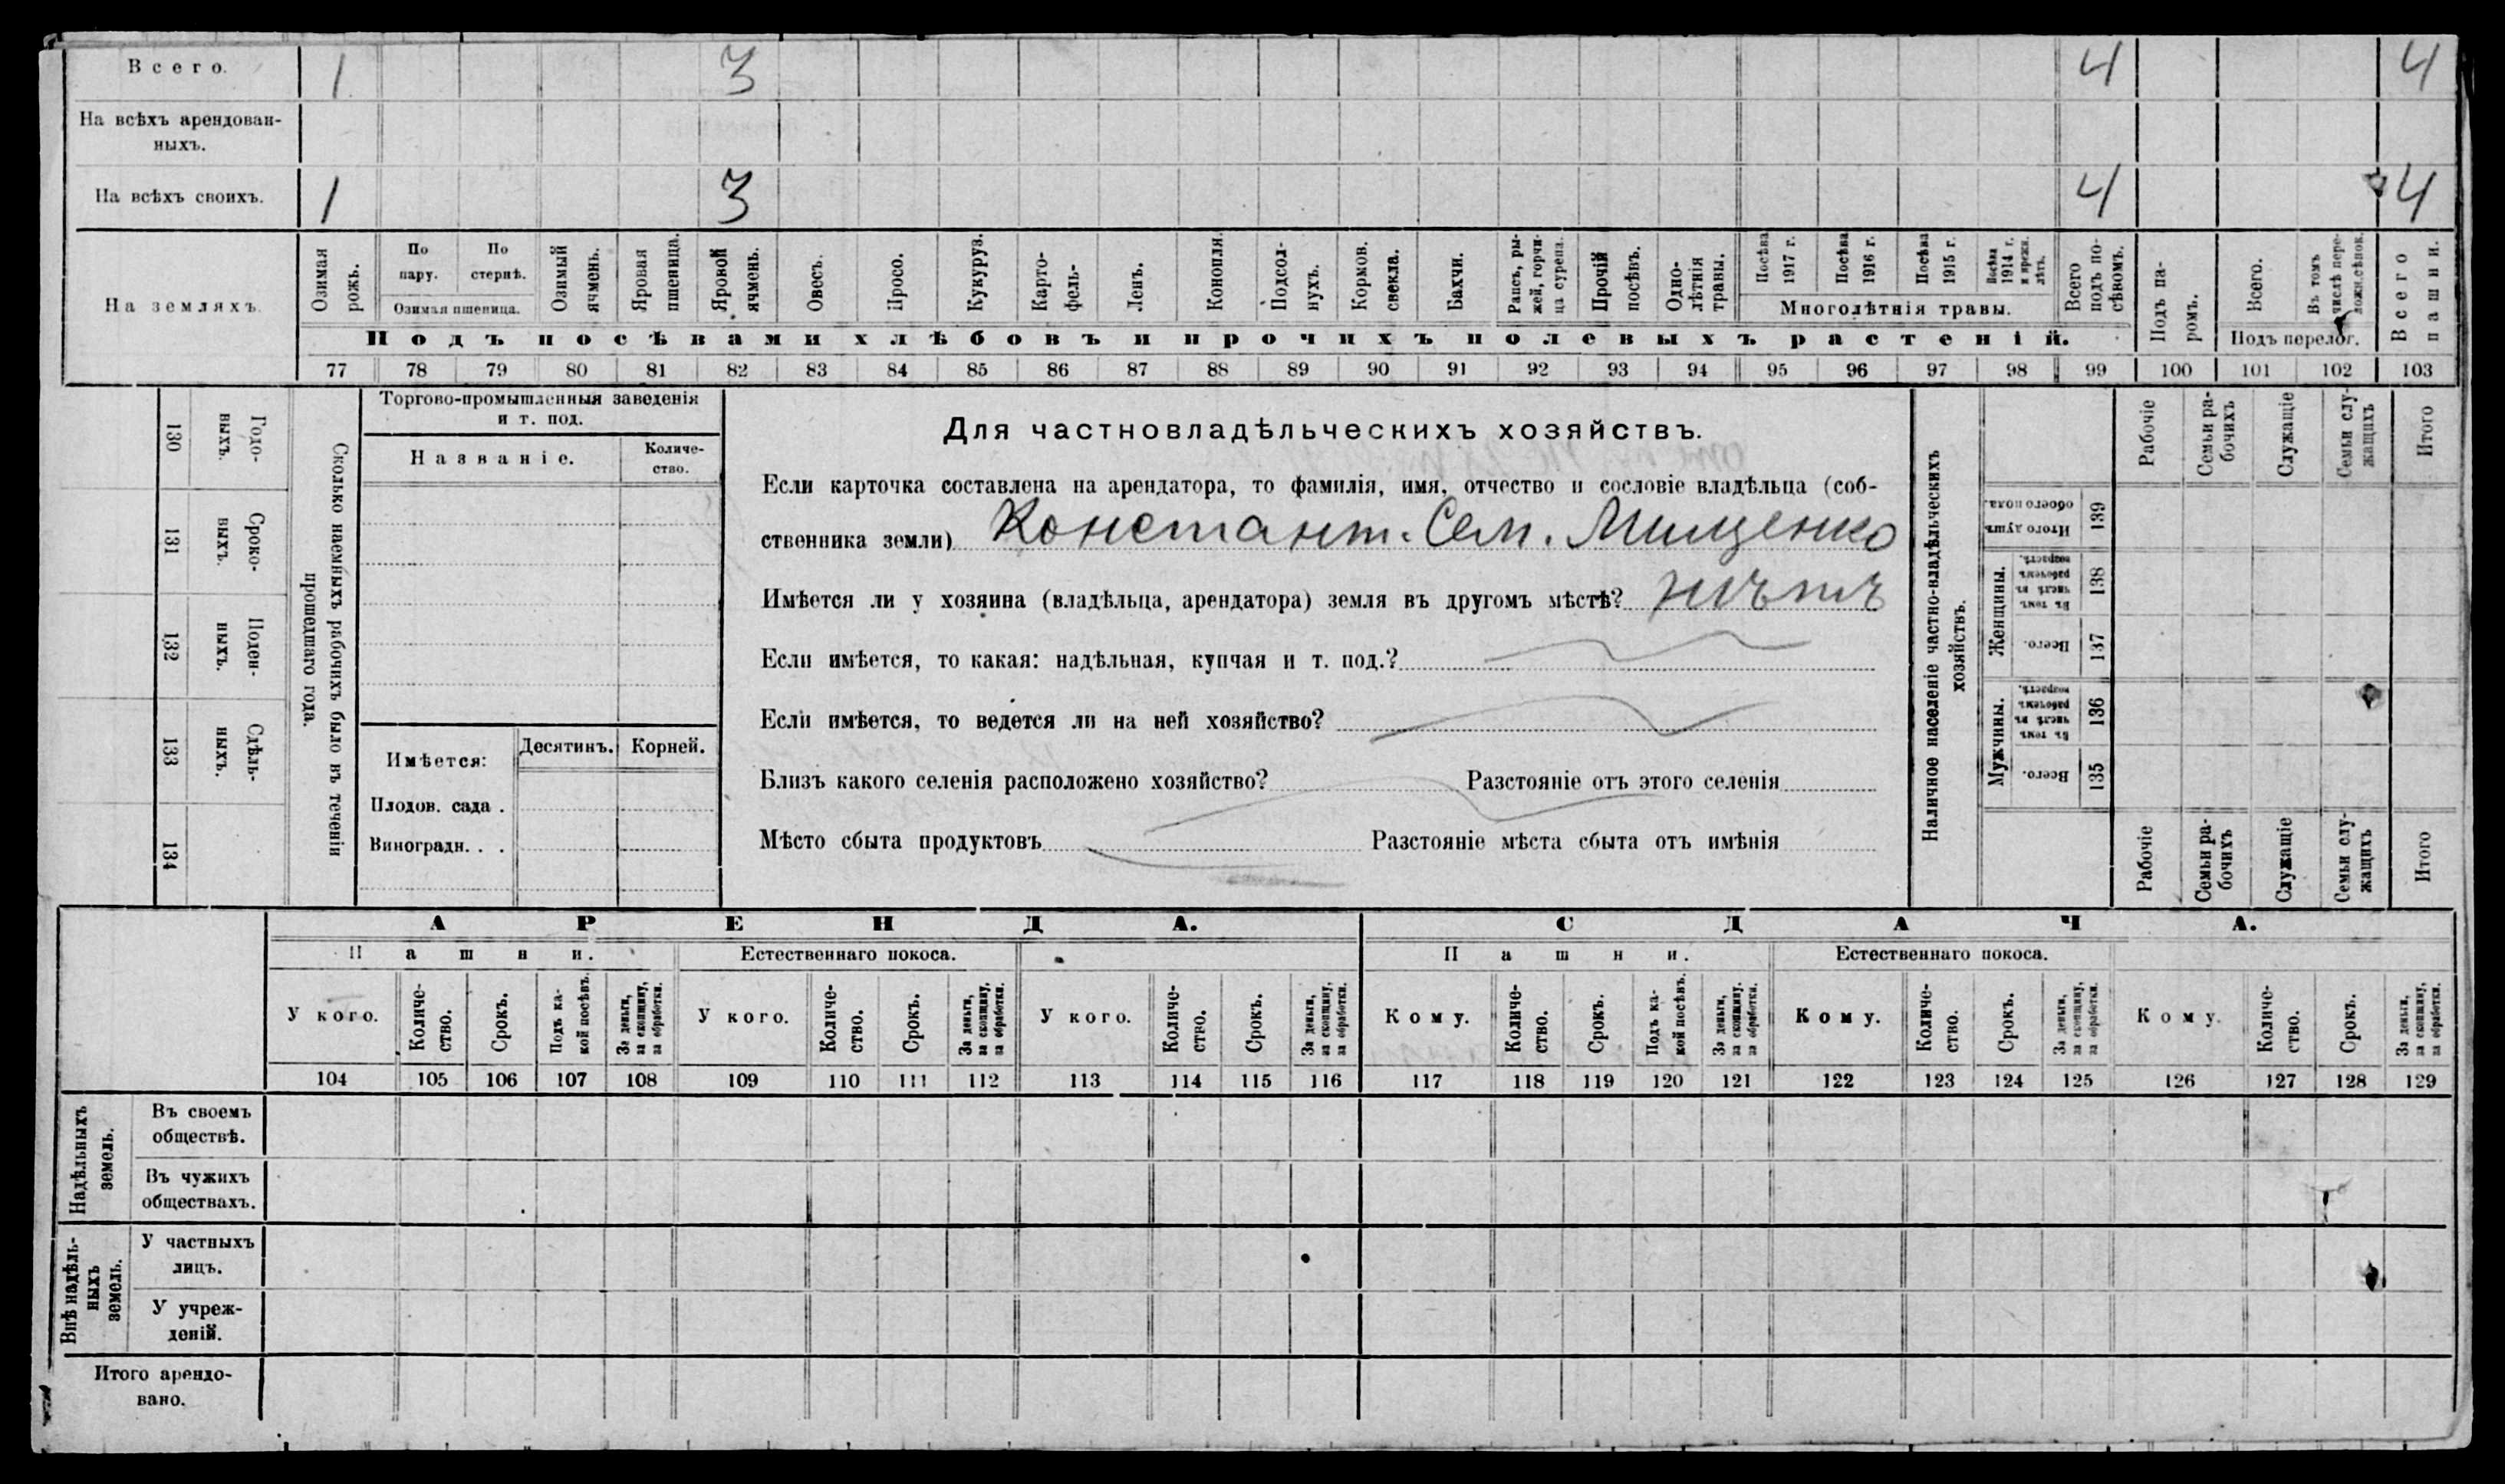 Всего. 1 3 4 4
На всѣхъ арендован-
ныхъ.
На всѣхъ своихъ. 1 3 4 4
На земляхъ.
Озимая рожь.
По пару.
По стернѣ.
Озимая пшеница.
Озимый ячмень.
Яровая пшеница.
Яровой ячмень.
Овесъ.
Просо.
Кукуруз.
Карто-
фель-
Ленъ.
Конопля.
Подсол-
нухъ.
Кормов. свекла.
Бахчи.
Рапсъ, ры-
жей, горчи-
ца сурепа.
Прочій посѣвъ.
Одно-
лѣтнія травы.
Посѣва 1917 г.
Посѣва 1916 г.
Посѣва 1915 г.
Посѣва 1914 г. и прежн. лѣтъ.
Многолѣтнія травы.
Всего подъ по-
сѣвомъ.
Подъ па-
ромъ.
Всего.
Въ томъ числѣ пере-
ложн. сѣнок.
Подъ перелог.
Всего пашни.
Подъ посѣвами хлѣбовъ и прочихъ полевыхъ растеній.
77 78 79 80 81 82 83 84 85 86 87 88 89 90 91 92 93 94 95 96 97 98 99 100 101 102 103
130 Годо-
выхъ.
131 Сроко-
выхъ.
132 Поден-
ныхъ.
133 Сдѣль-
ныхъ.
134
Сколько наемныхъ рабочихъ было въ теченіи
прошедшаго года.
Торгово-промышленныя заведенія
и т. под.
Названіе.
Количе-
ство.
Имѣется:
Десятинъ. Корней.
Плодов. сада .
Виноградн. . .
Для частновладѣльческихъ хозяйствъ.
Если карточка составлена на арендатора, то фамилія, имя, отчество и сословіе владѣльца (соб-
ственника земли) Констант. Сем. Мищенко
Имѣется ли у хозяина (владѣльца, арендатора) земля въ другомъ мѣстѣ? нѣтъ
Если имѣется, то какая: надѣльная, купчая и т. под.?
Если имѣется, то ведется ли на ней хозяйство?
Близъ какого селенія расположено хозяйство? Разстояніе отъ этого селенія
Мѣсто сбыта продуктовъ Разстояніе мѣста сбыта отъ имѣнія
Наличное населеніе частно-владѣльческихъ
хозяйствъ.
Рабочіе
Семьи ра-
бочихъ
Служащіе
Семьи слу-
жащихъ
Итого
Итого душъ обоего пола. 139
Женщины.
Въ томъ числѣ въ рабочемъ возрастѣ. 138
Всего. 137
Мужчины.
Въ томъ числѣ въ рабочемъ возрастѣ. 136
Всего. 135
Рабочіе
Семьи ра-
бочихъ
Служащіе
Семьи слу-
жащихъ
Итого
АРЕНДА. СДАЧА.
Пашни. Естественнаго покоса. Пашни. Естественнаго покоса.
У кого.
Количе-
ство.
Срокъ.
Подъ ка-
кой посѣвъ.
За деньги, за скопщину, за обработки.
У кого.
Количе-
ство.
Срокъ.
За деньги, за скопщину, за обработки.
У кого.
Количе-
ство.
Срокъ.
За деньги, за скопщину, за обработки.
Кому.
Количе-
ство.
Срокъ.
Подъ ка-
кой посѣвъ.
За деньги, за скопщину, за обработки.
Кому.
Количе-
ство.
Срокъ.
За деньги, за скопщину, за обработки.
Кому.
Количе-
ство.
Срокъ.
За деньги, за скопщину, за обработки.
104 105 106 107 108 109 110 111 112 113 114 115 116 117 118 119 120 121 122 123 124 125 126 127 128 129
Надѣльныхъ
земель.
Въ своемъ
обществѣ.
Въ чужихъ
обществахъ.
Внѣ надѣль-
ныхъ
земель.
У частныхъ
лицъ.
У учреж-
деній.
Итого арендо-
вано.